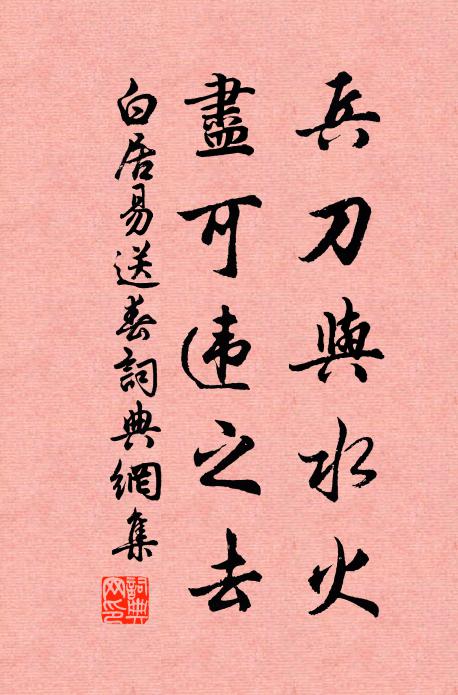 兵刀與水火
盡可違之去
白居易送春詞典網集
詞典網印